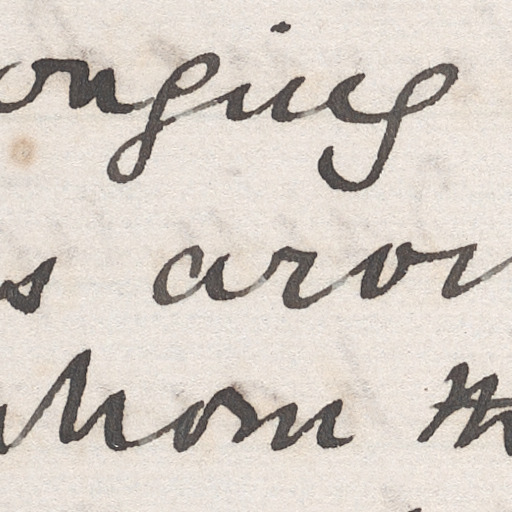 onging
s arou
whom th